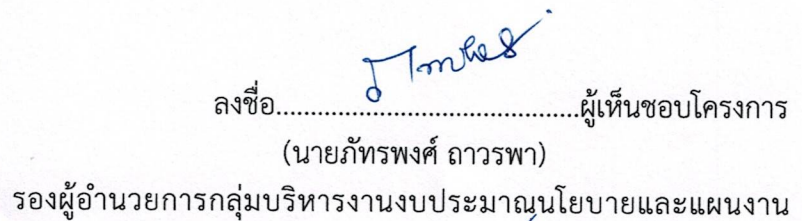 ลงชื่อ............................................ผู้เห็นชอบโครงการ
(นายภัทรพงศ์ ถาวรพา)
รองผู้อำนวยการกลุ่มบริหารงานงบประมาณนโยบายและแผนงาน